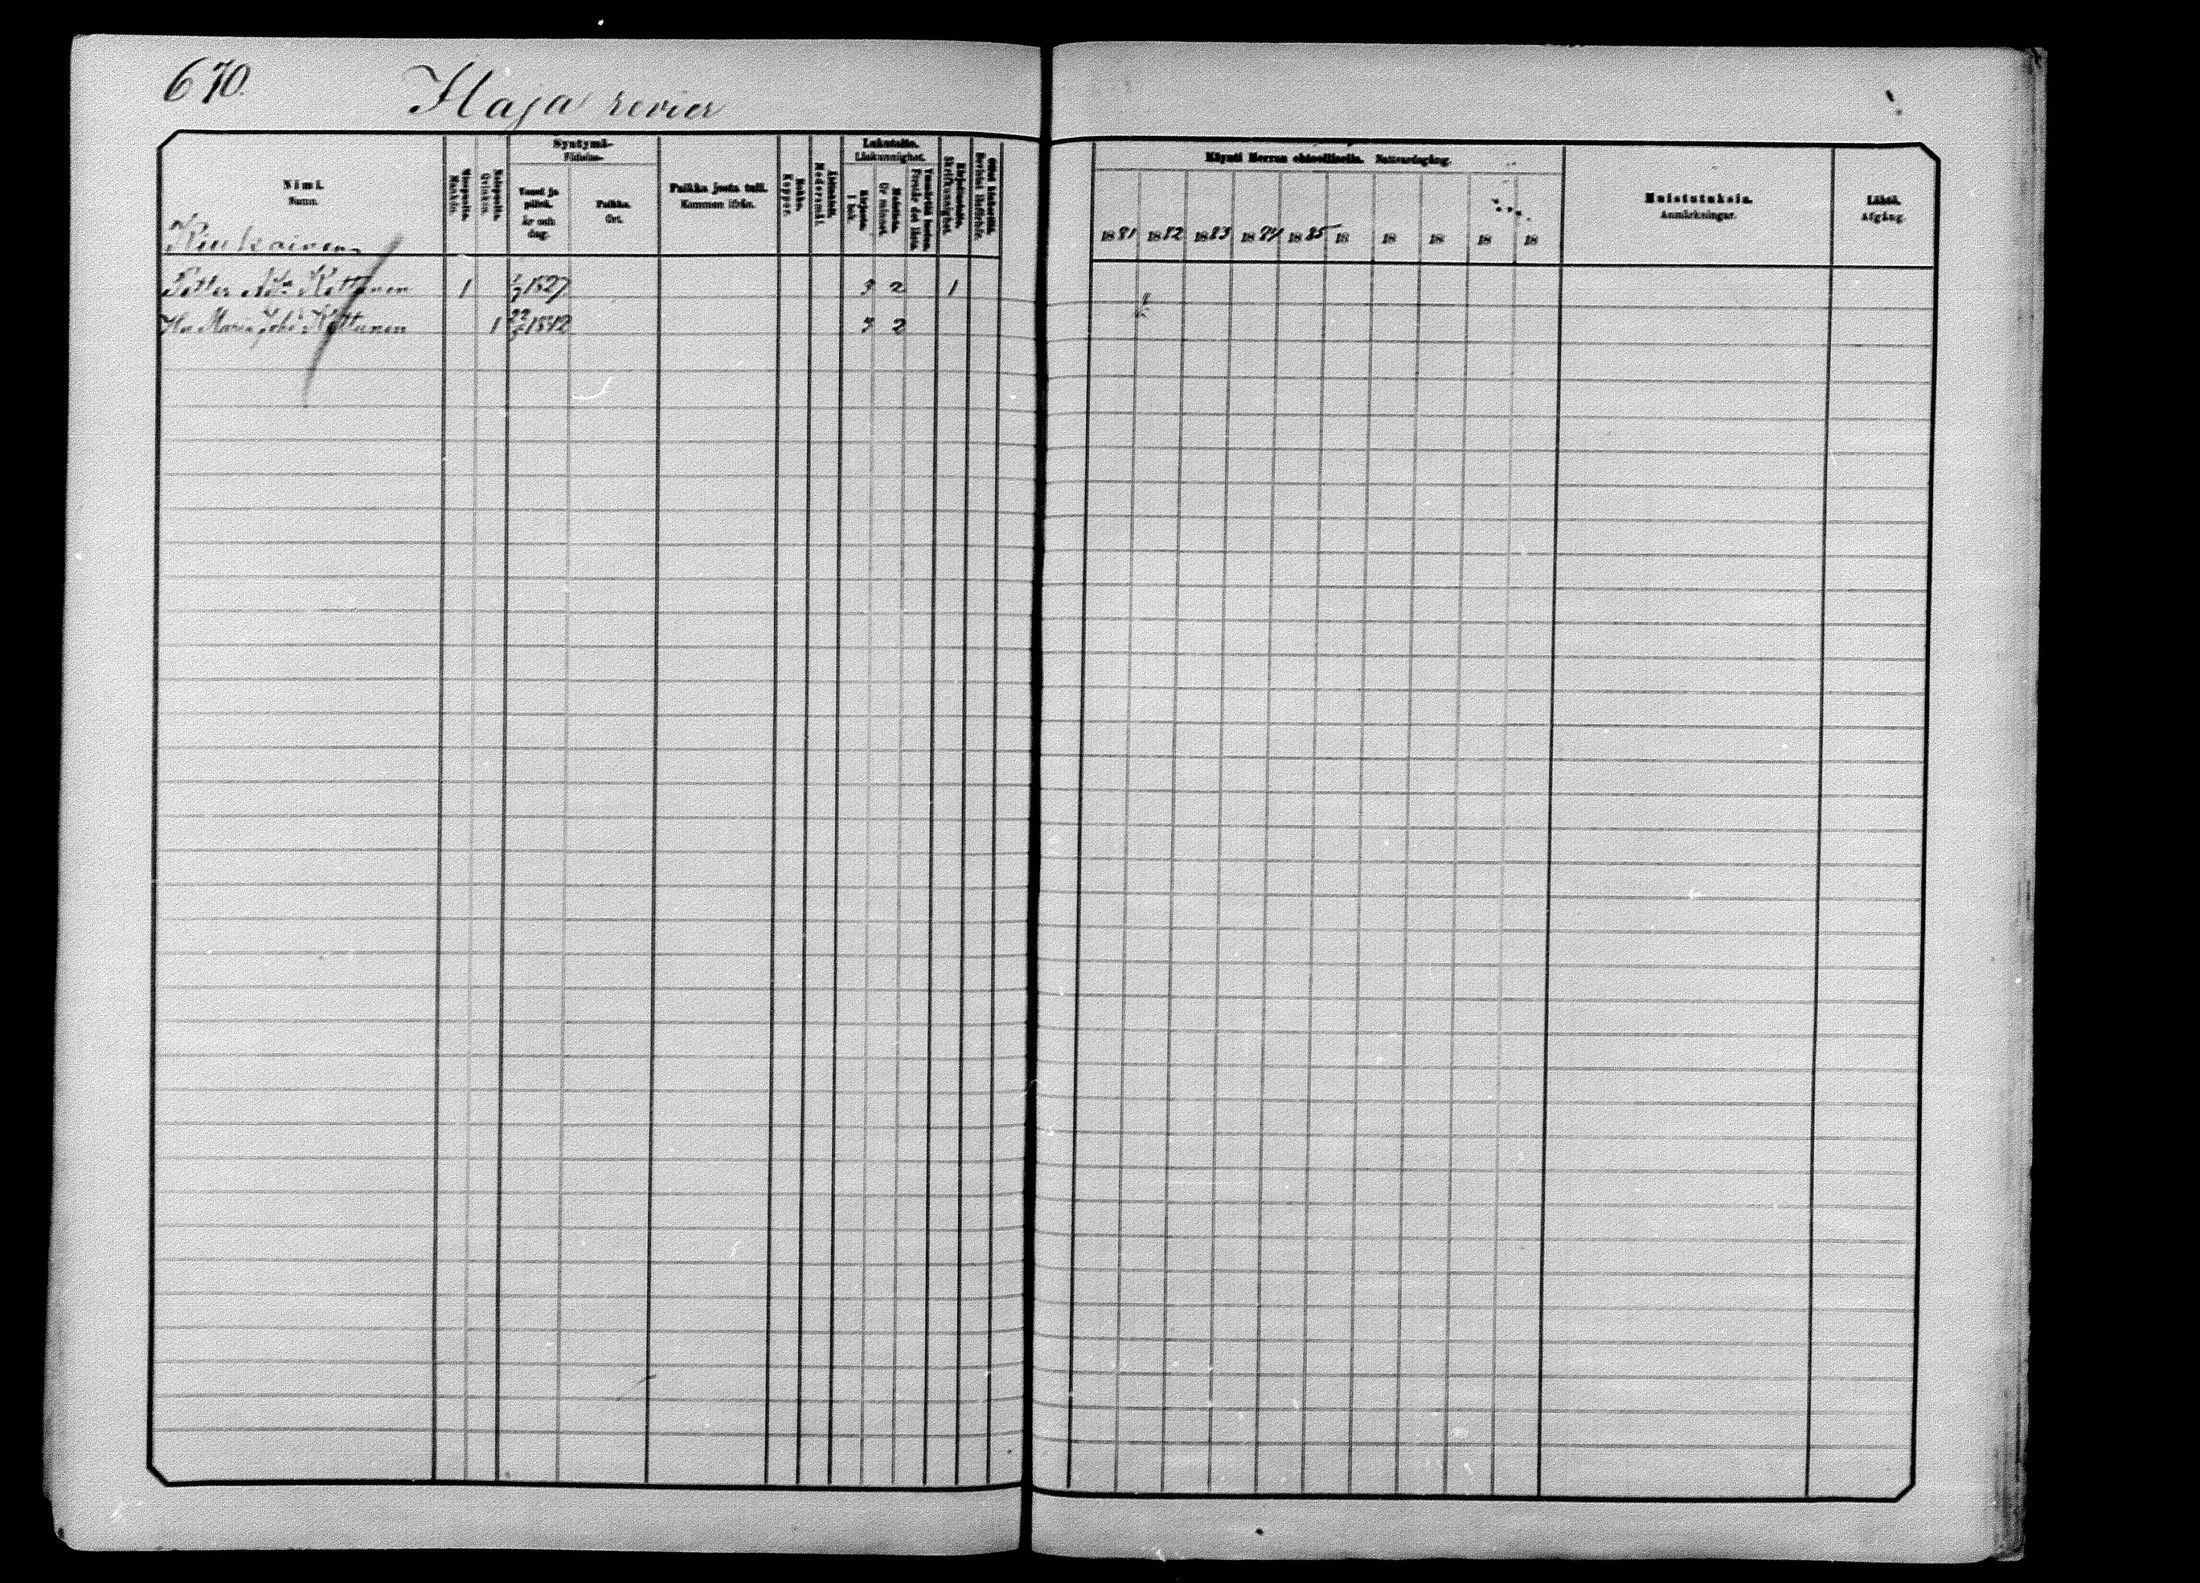 670.
Haja revier
Nimi.
Namn.
Miespuolia.
Mankön.
Naispuolia.
Qvinkön.
Syntymä-
Födelse-
Vuosi ja päivä.
År och dag.
Paikka.
Ort.
Paikka josta tuli.
Kommen ifrån.
Rokko.
Koppor.
Äidinkieli.
Modersmål.
Lukutaito.
Läskunnighet.
Kirjasta.
I bok.
Muistista.
Ur minnet.
Ymmärtää luetun.
Förstår det lästa.
Kirjoitustaito.
Skrifkunnighet.
Käynti Herran ehtoollisella. Nattvardsgång.
1881 1882 1883 1884 1885 18 18 18 18 18
Muistutuksia.
Anmärkningar.
Lähtö.
Afgång.
Petter Kettunen 1 1827 3 2 1
Maria Kettunen 1 22 1842 3 2